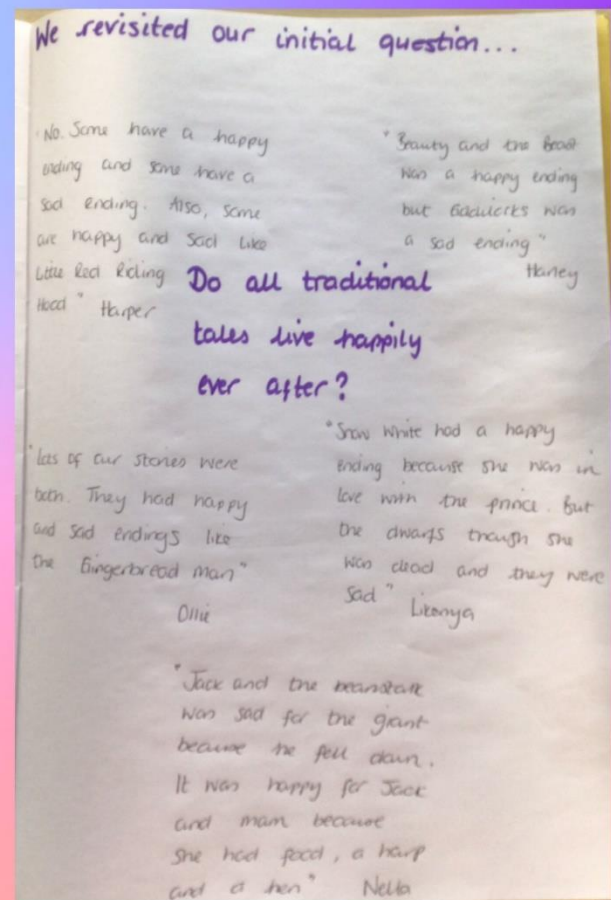 We revisited our initial question...
"No. Some have a happy
ending and some have a
sad ending. Also, some
are happy and sad like
Little Red Riding
Hood" Harper
"Beauty and the Beast
was a happy ending
but was
a sad ending"
Harley
Do all traditional
tales live happily
ever after?
"lots of our stories were
both. They had happy
and sad endings like
the Gingerbread man"
Ollie
"Snow White had a happy
ending because she was in
love with the prince. But
the dwarfs though she
was dead and they were
sad" Likonya
"Jack and the beanstalk
was sad for the giant
because he fell down.
It was happy for Jack
and mam because
she had food, a harp
and a hen" Nella